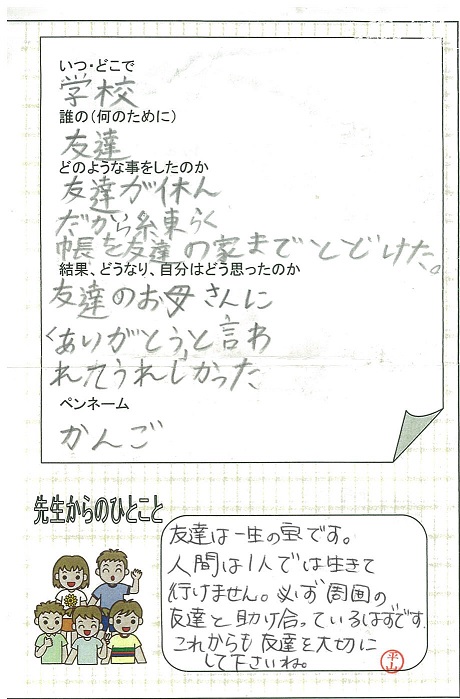 いつ・どこで
学校
誰の(何のために)
友達
どのような事をしたのか
友達が休ん
だから糸東らく
帳を友達の家までとどけた。
結果、どうなり、自分はどう思ったのか
友達のお母さんに
くありがとうと言わ
れてうれしかった
ペンネーム
かんご
先生からのひとこと
友達は一生の宝です。
人間は1人では生きて
行けません。必ず周囲の
友達と助け合っているはずです.
これからも友達を大切に
して下さいね。
平山